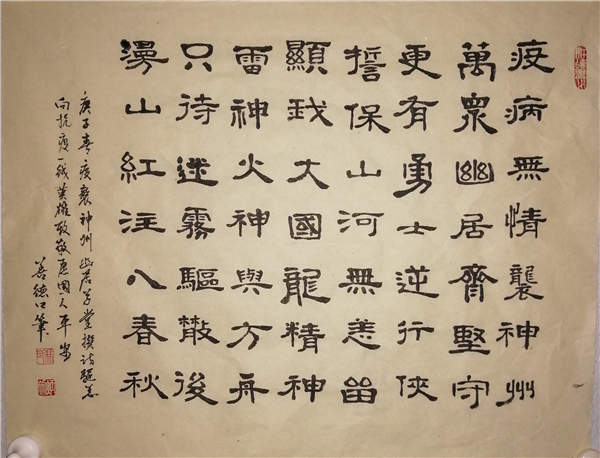 疫病無情襲神州
萬眾幽居齊堅守
更有勇士逆行俠
誓保山河無恙留
顯我大國龍精神
雷神火神與方舟
只待迷霧驅散後
漫山紅注入春秋
庚子春疫襲神州幽居草堂撰詩驅恙
向抗疫一线英雄致敬愿國人平安
善德口筆